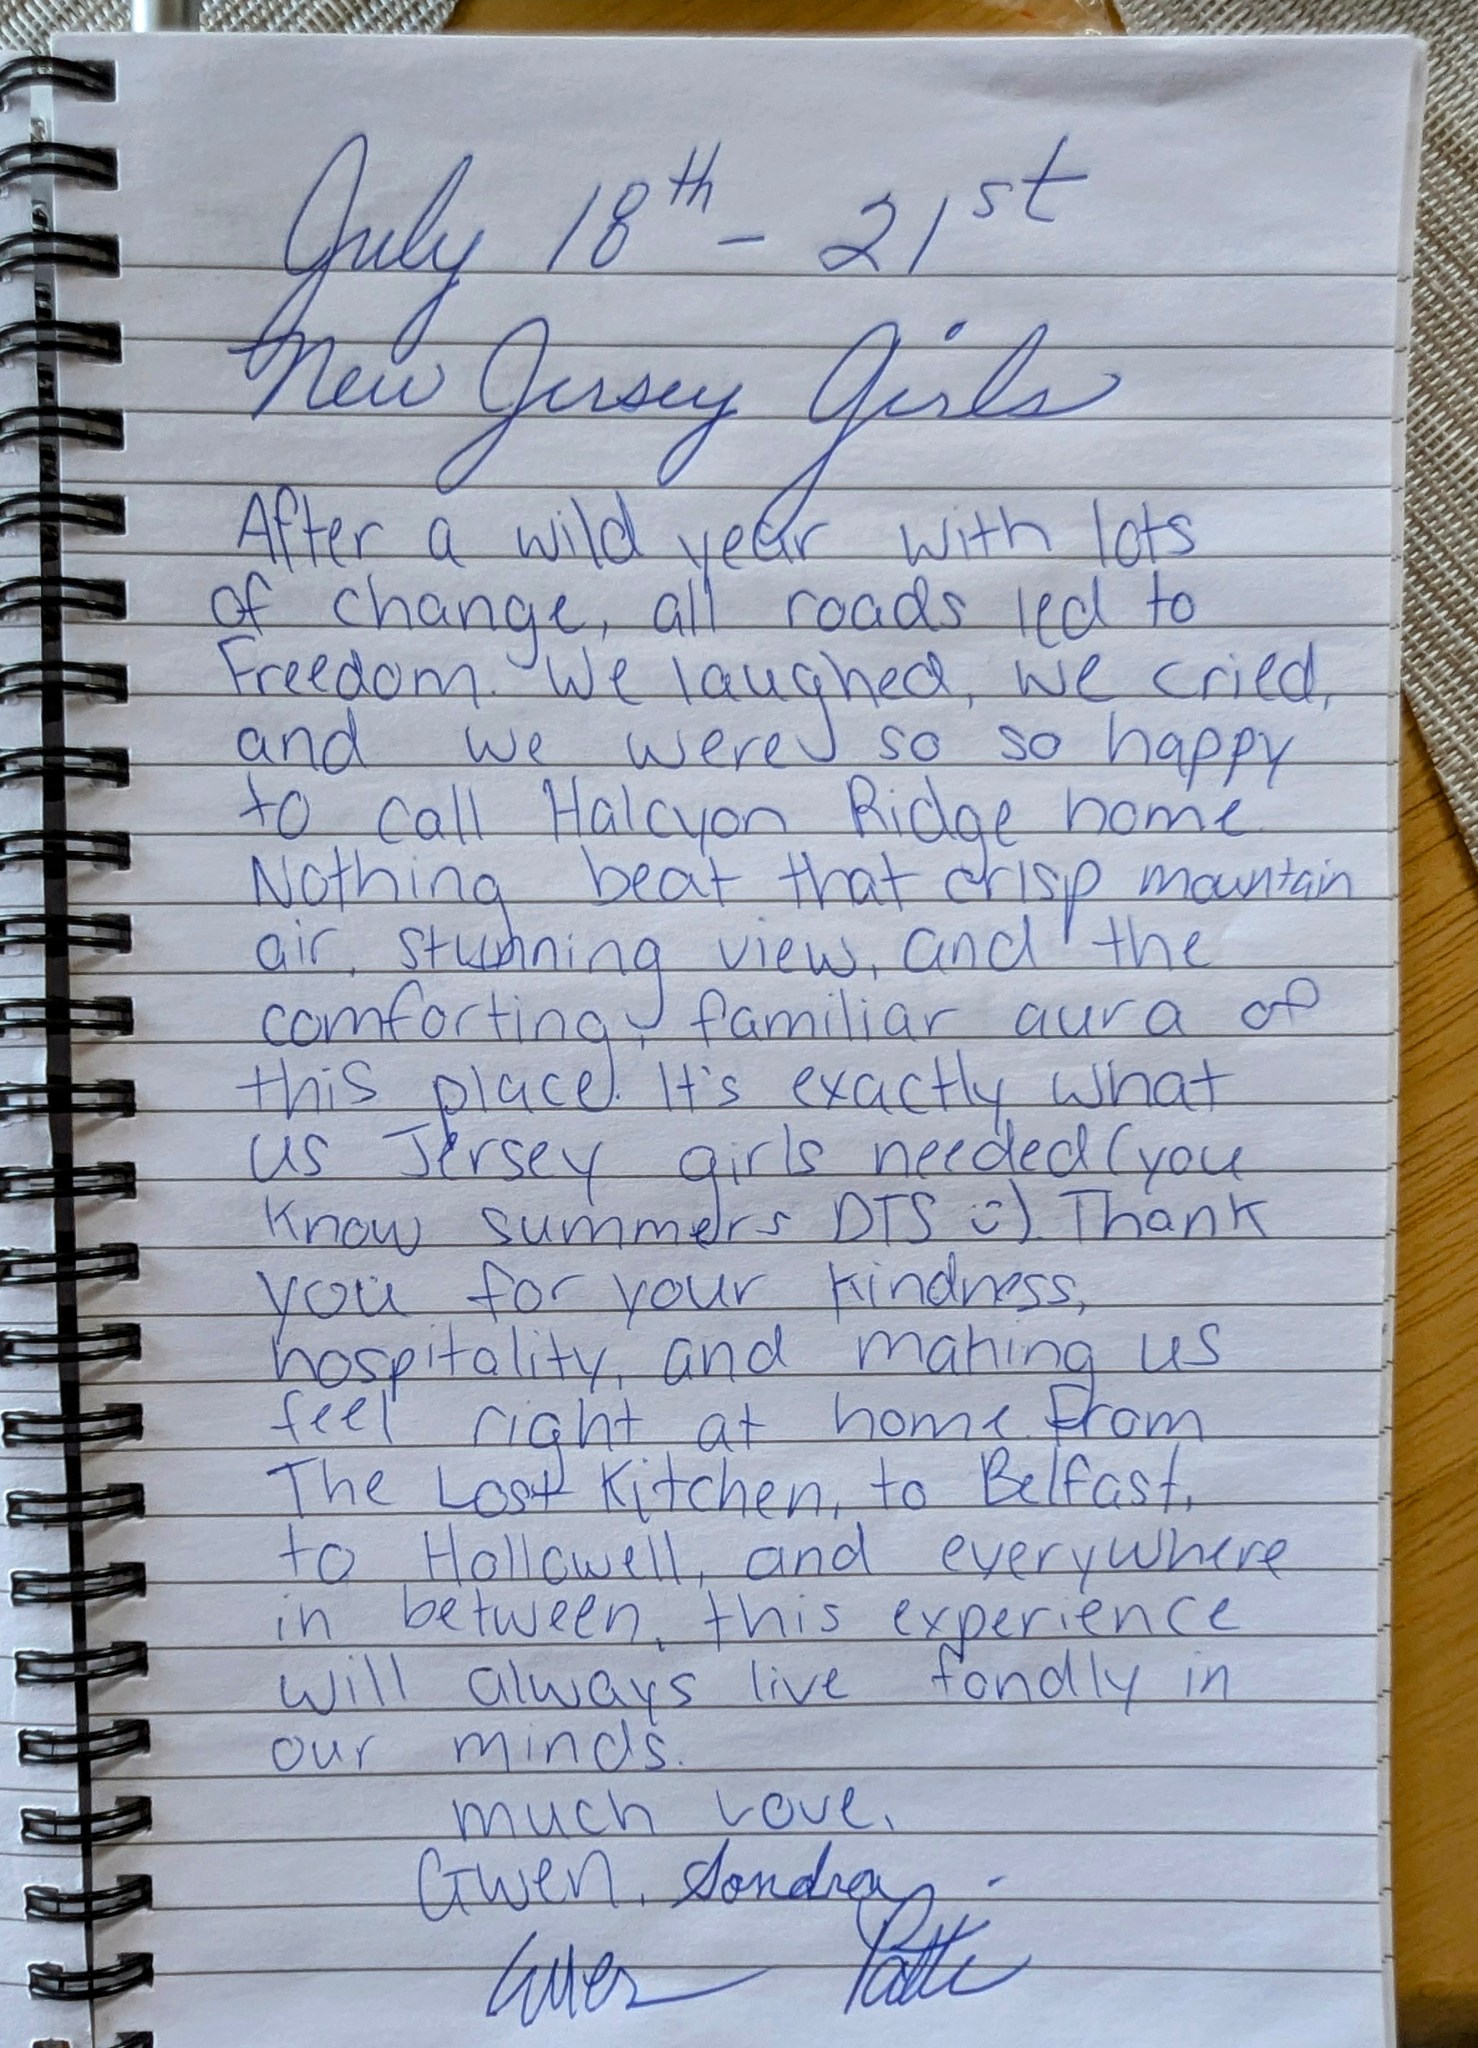 July 18th - 21st
New Jersey Girls
After a wild year with lots
of change, all roads led to
Freedom. We laughed, we cried,
and we were so so happy
to call Halcyon Ridge home.
Nothing beat that crisp mountain
air, stunning view, and the
comforting, familiar aura of
this place. It's exactly what
us Jersey girls needed (you
know summers DTS :). Thank
you for your kindness,
hospitality, and making us
feel right at home. From
The Lost Kitchen, to Belfast,
to Hallowell, and everywhere
in between, this experience
will always live fondly in
our minds.
much Love,
Gwen, Sondra,
Patti